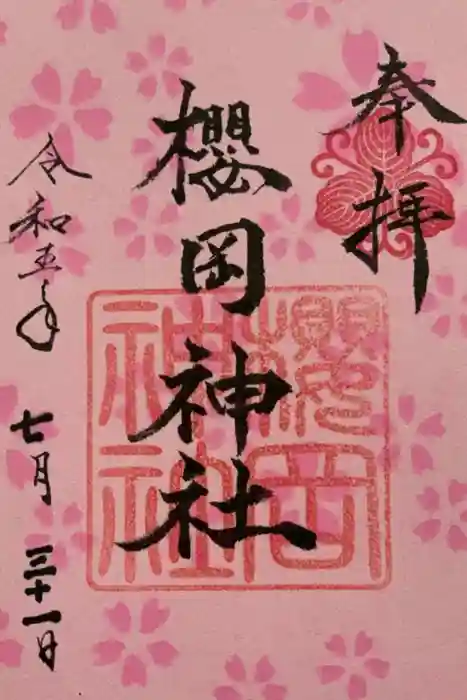 奉拝
櫻岡神社
櫻岡神社
令和五年
七月三十一日